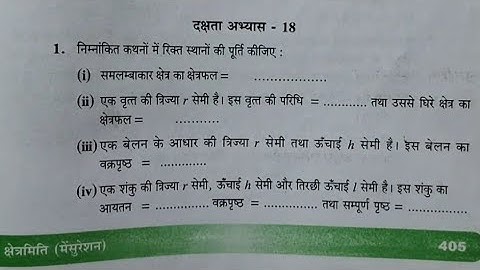 दक्षता अभ्यास - 18
1. निम्नांकित कथनों में रिक्त स्थानों की पूर्ति कीजिए :
(i) समलम्बाकार क्षेत्र का क्षेत्रफल = ...................
(ii) एक वृत्त की त्रिज्या r सेमी है। इस वृत्त की परिधि = ............ तथा उससे घिरे क्षेत्र का
क्षेत्रफल = ............
(iii) एक बेलन के आधार की त्रिज्या r सेमी तथा ऊँचाई h सेमी है। इस बेलन का
वक्रपृष्ठ = .............
(iv) एक शंकु की त्रिज्या r सेमी, ऊँचाई h सेमी और तिरछी ऊँचाई l सेमी है। इस शंकु का
आयतन = ............... वक्रपृष्ठ = .............. तथा सम्पूर्ण पृष्ठ = ..............
क्षेत्रमिति (मेंसुरेशन) 405